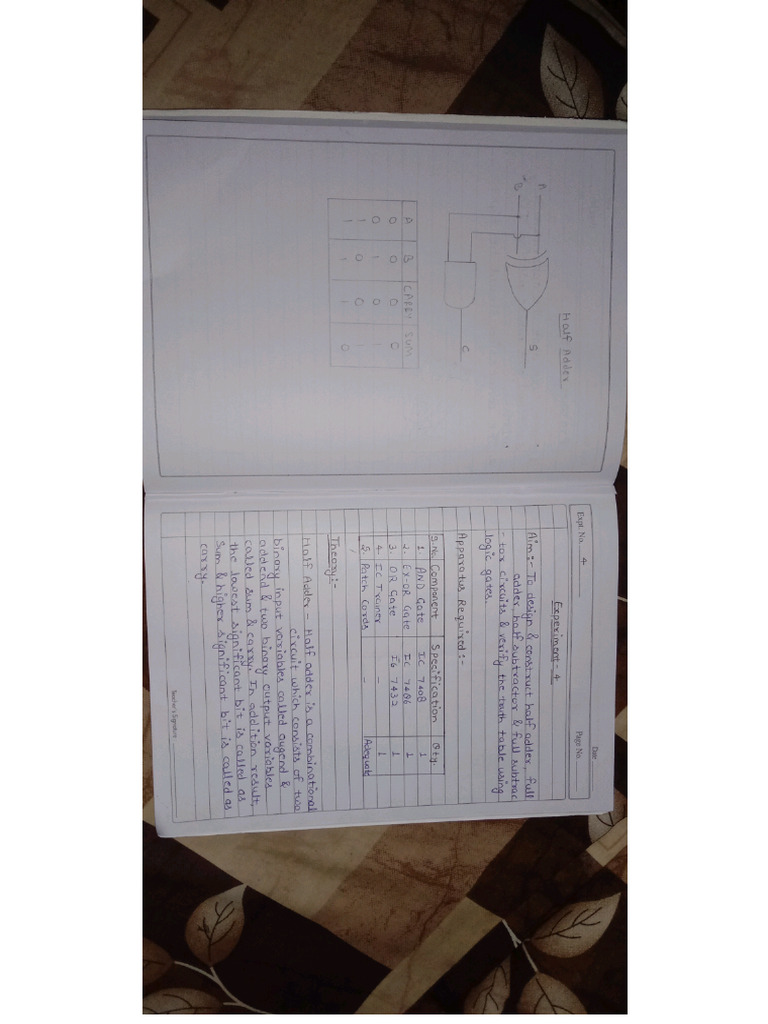 Half Adder
A
B
S
C
A B CARRY SUM
0 0 0 0
0 1 0 1
1 0 0 1
1 1 1 0
Date
Expt. No. 4
Page No.
Experiment - 4
Aim:- To design & construct half adder, full
adder, half subtractor & full subtrac
-tor circuits & verify the truth table using
logic gates.
Apparatus Required:-
S.no. Component Specification Qty.
1. AND Gate IC 7408 1
2. EX-OR Gate IC 7486 1
3. OR Gate IC 7432 1
4. IC Trainer - 1
5. Patch Cords - Adequate
Theory:-
Half Adder - Half adder is a combinational
circuit which consists of two
binary input variables called augend &
addend & two binary output variables
called sum & carry. In addition result,
the lowest significant bit is called as
sum & higher significant bit is called as
carry.
Teacher's Signature